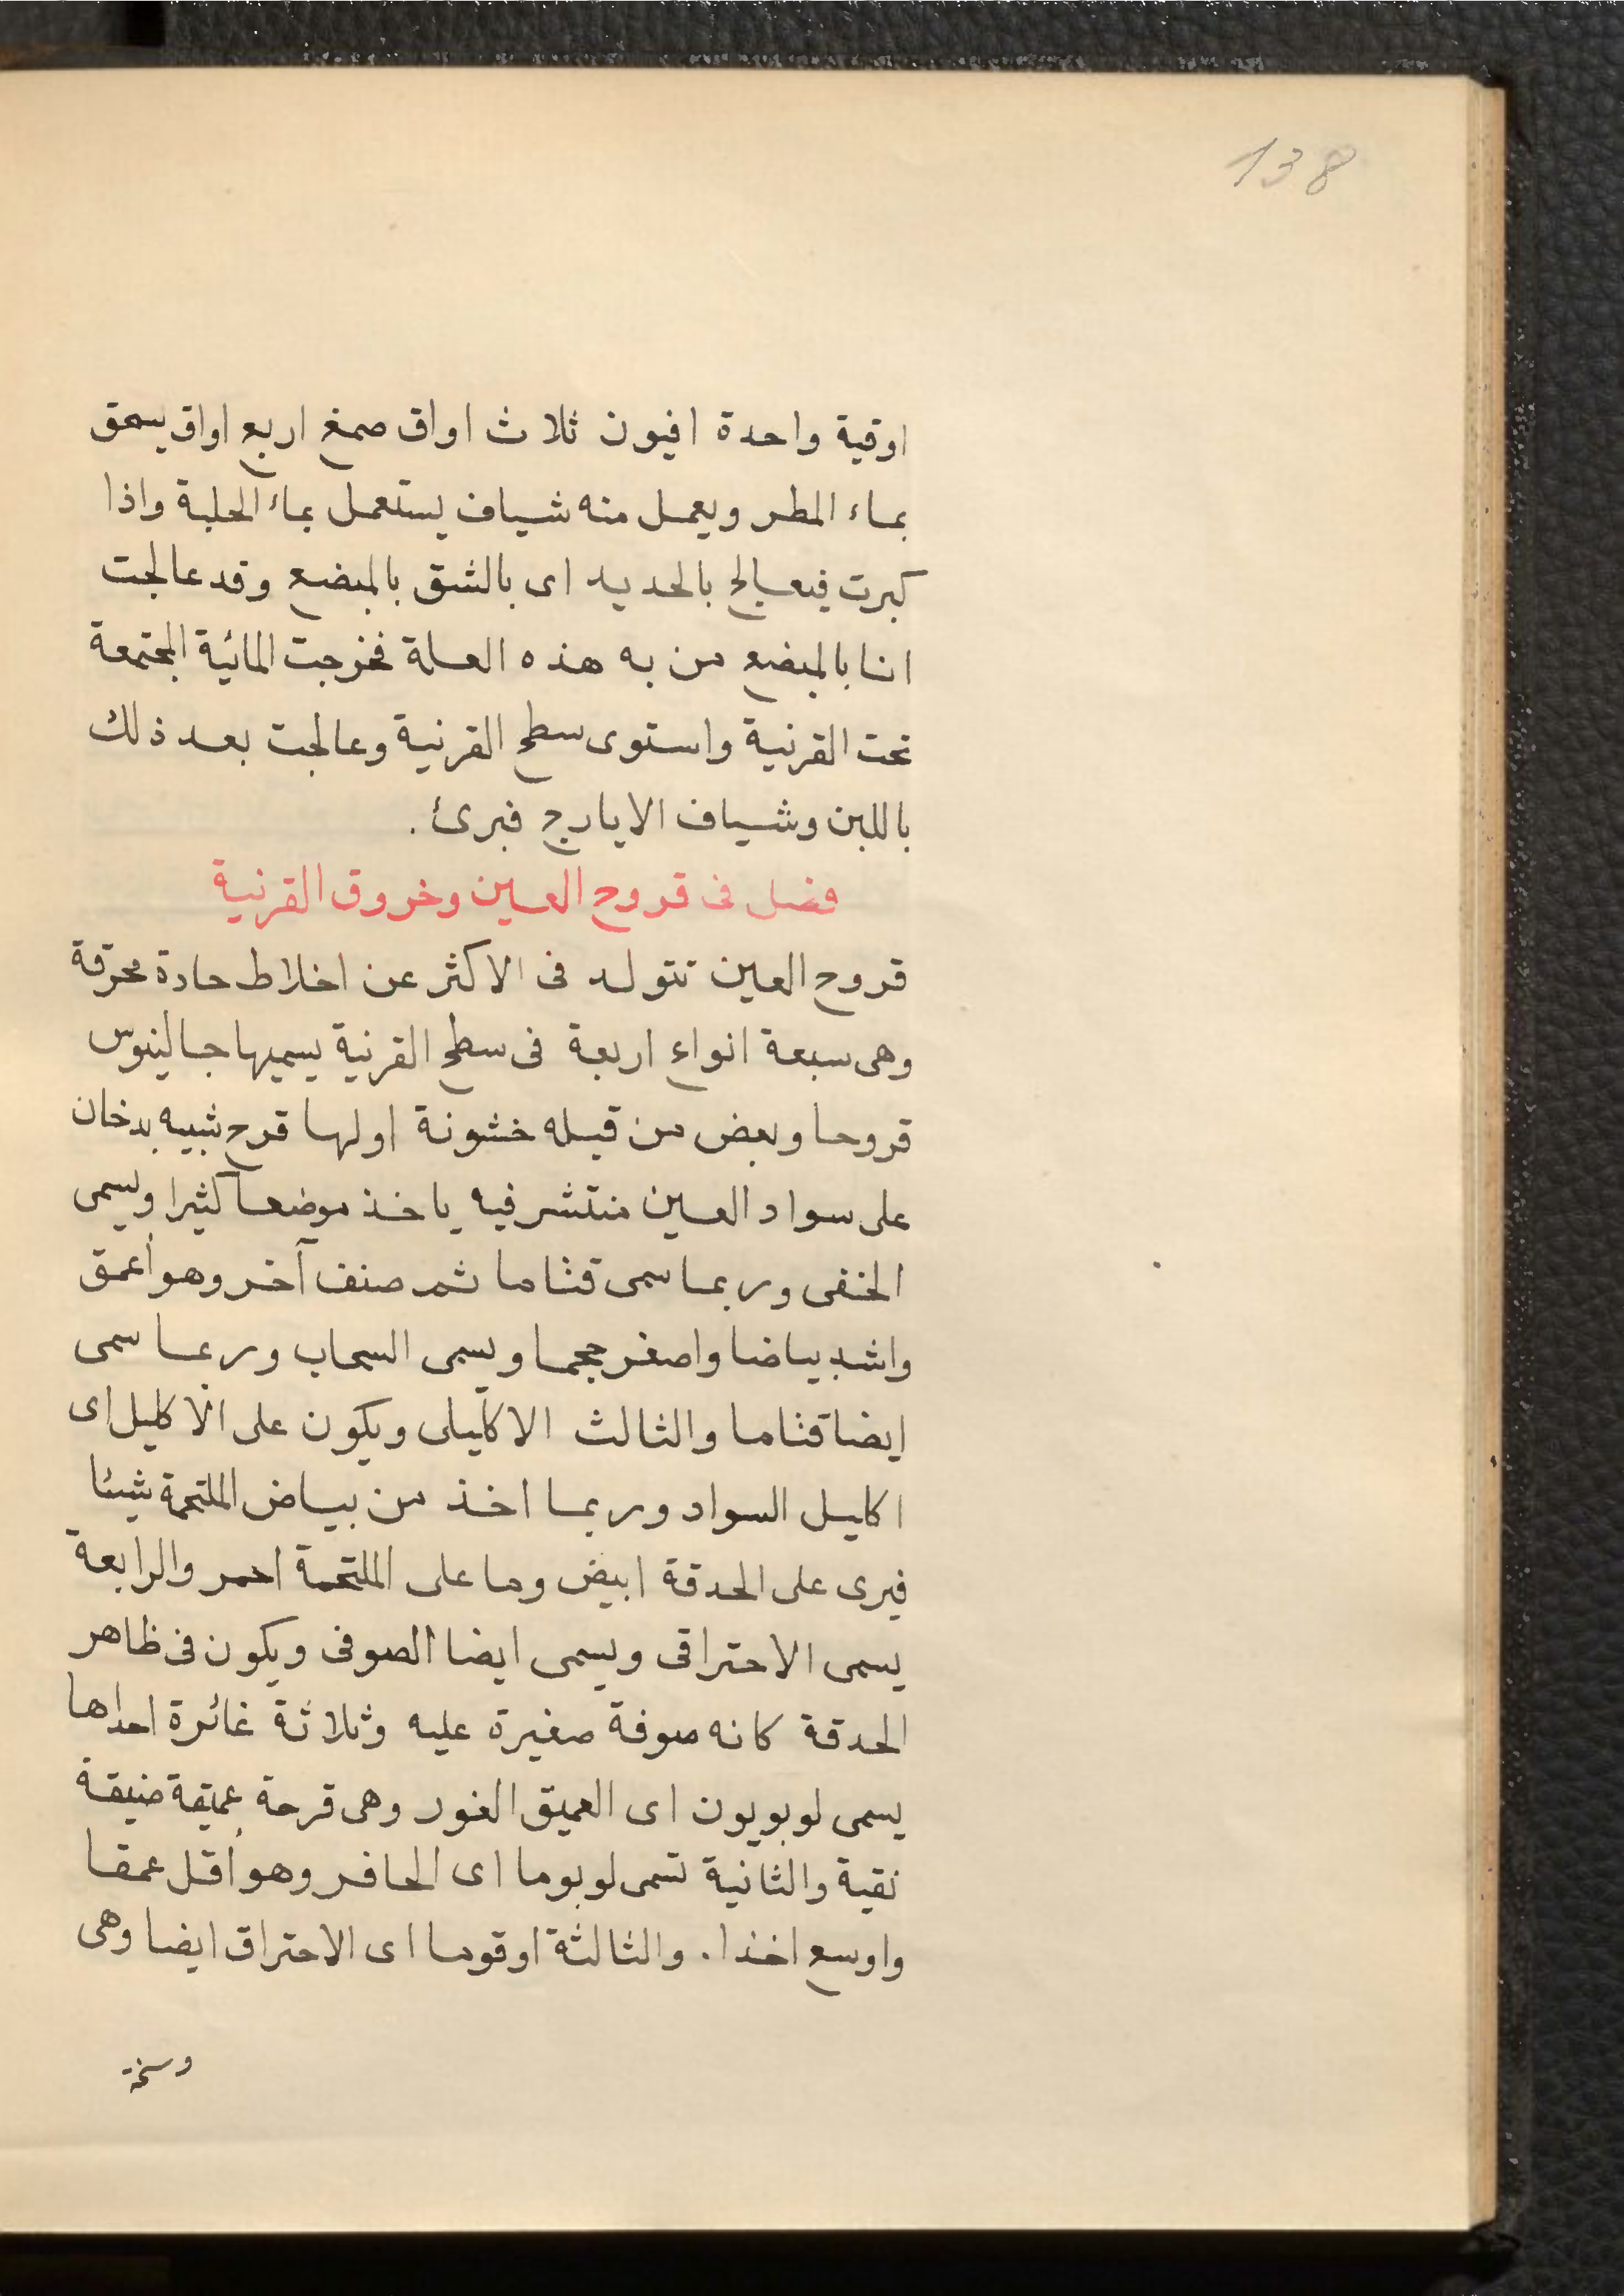 138
اوقية واحدة افيون ثلاث اواق صمغ اربع اواق يسحق
بماء المطر ويعمل منه شياف يستعمل بماء الحلبة واذا
كبرت فيعالج بالحديد اى بالشق بالمبضع وقد عالجت
انا بالمبضع من به هذه العلة فخرجت المائية المجتمعة
تحت القرنية واستوى سطح القرنية وعالجت بعد ذلك
باللبن وشياف الايارج فبرئ.
فصل فى قروح العين وخروق القرنية
قروح العين تتولد فى الاكثر عن اخلاط حادة محرقة
وهى سبعة انواع اربعة فى سطح القرنية يسميها جالينوس
قروحا وبعض من قبله خشونة اولها قرح شبيه بدخان
على سواد العين منتشر فيه ياخذ موضعا كثيرا ويسمى
الخفى وربما سمى قتاما ثم صنف آخر وهو أعمق
واشد بياضا واصغر حجما ويسمى السحاب وربما سمى
ايضا قتاما والثالث الاكليلى ويكون على الاكليل اى
اكليل السواد وربما اخذ من بياض الملتحمة شيئا
فيرى على الحدقة ابيض وما على الملتحمة احمر والرابعة
يسمى الاحتراقى ويسمى ايضا الصوفى ويكون فى ظاهر
الحدقة كانه صوفة صغيرة عليه وثلاثة غائرة احداها
يسمى لوبويون اى العميق الغور وهى قرحة عميقة ضيقة
نقية والثانية تسمى لوبوما اى الحافر وهو أقل عمقا
واوسع اخذا. والثالثة اوقوما اى الاحتراق ايضا وهى
وسخة